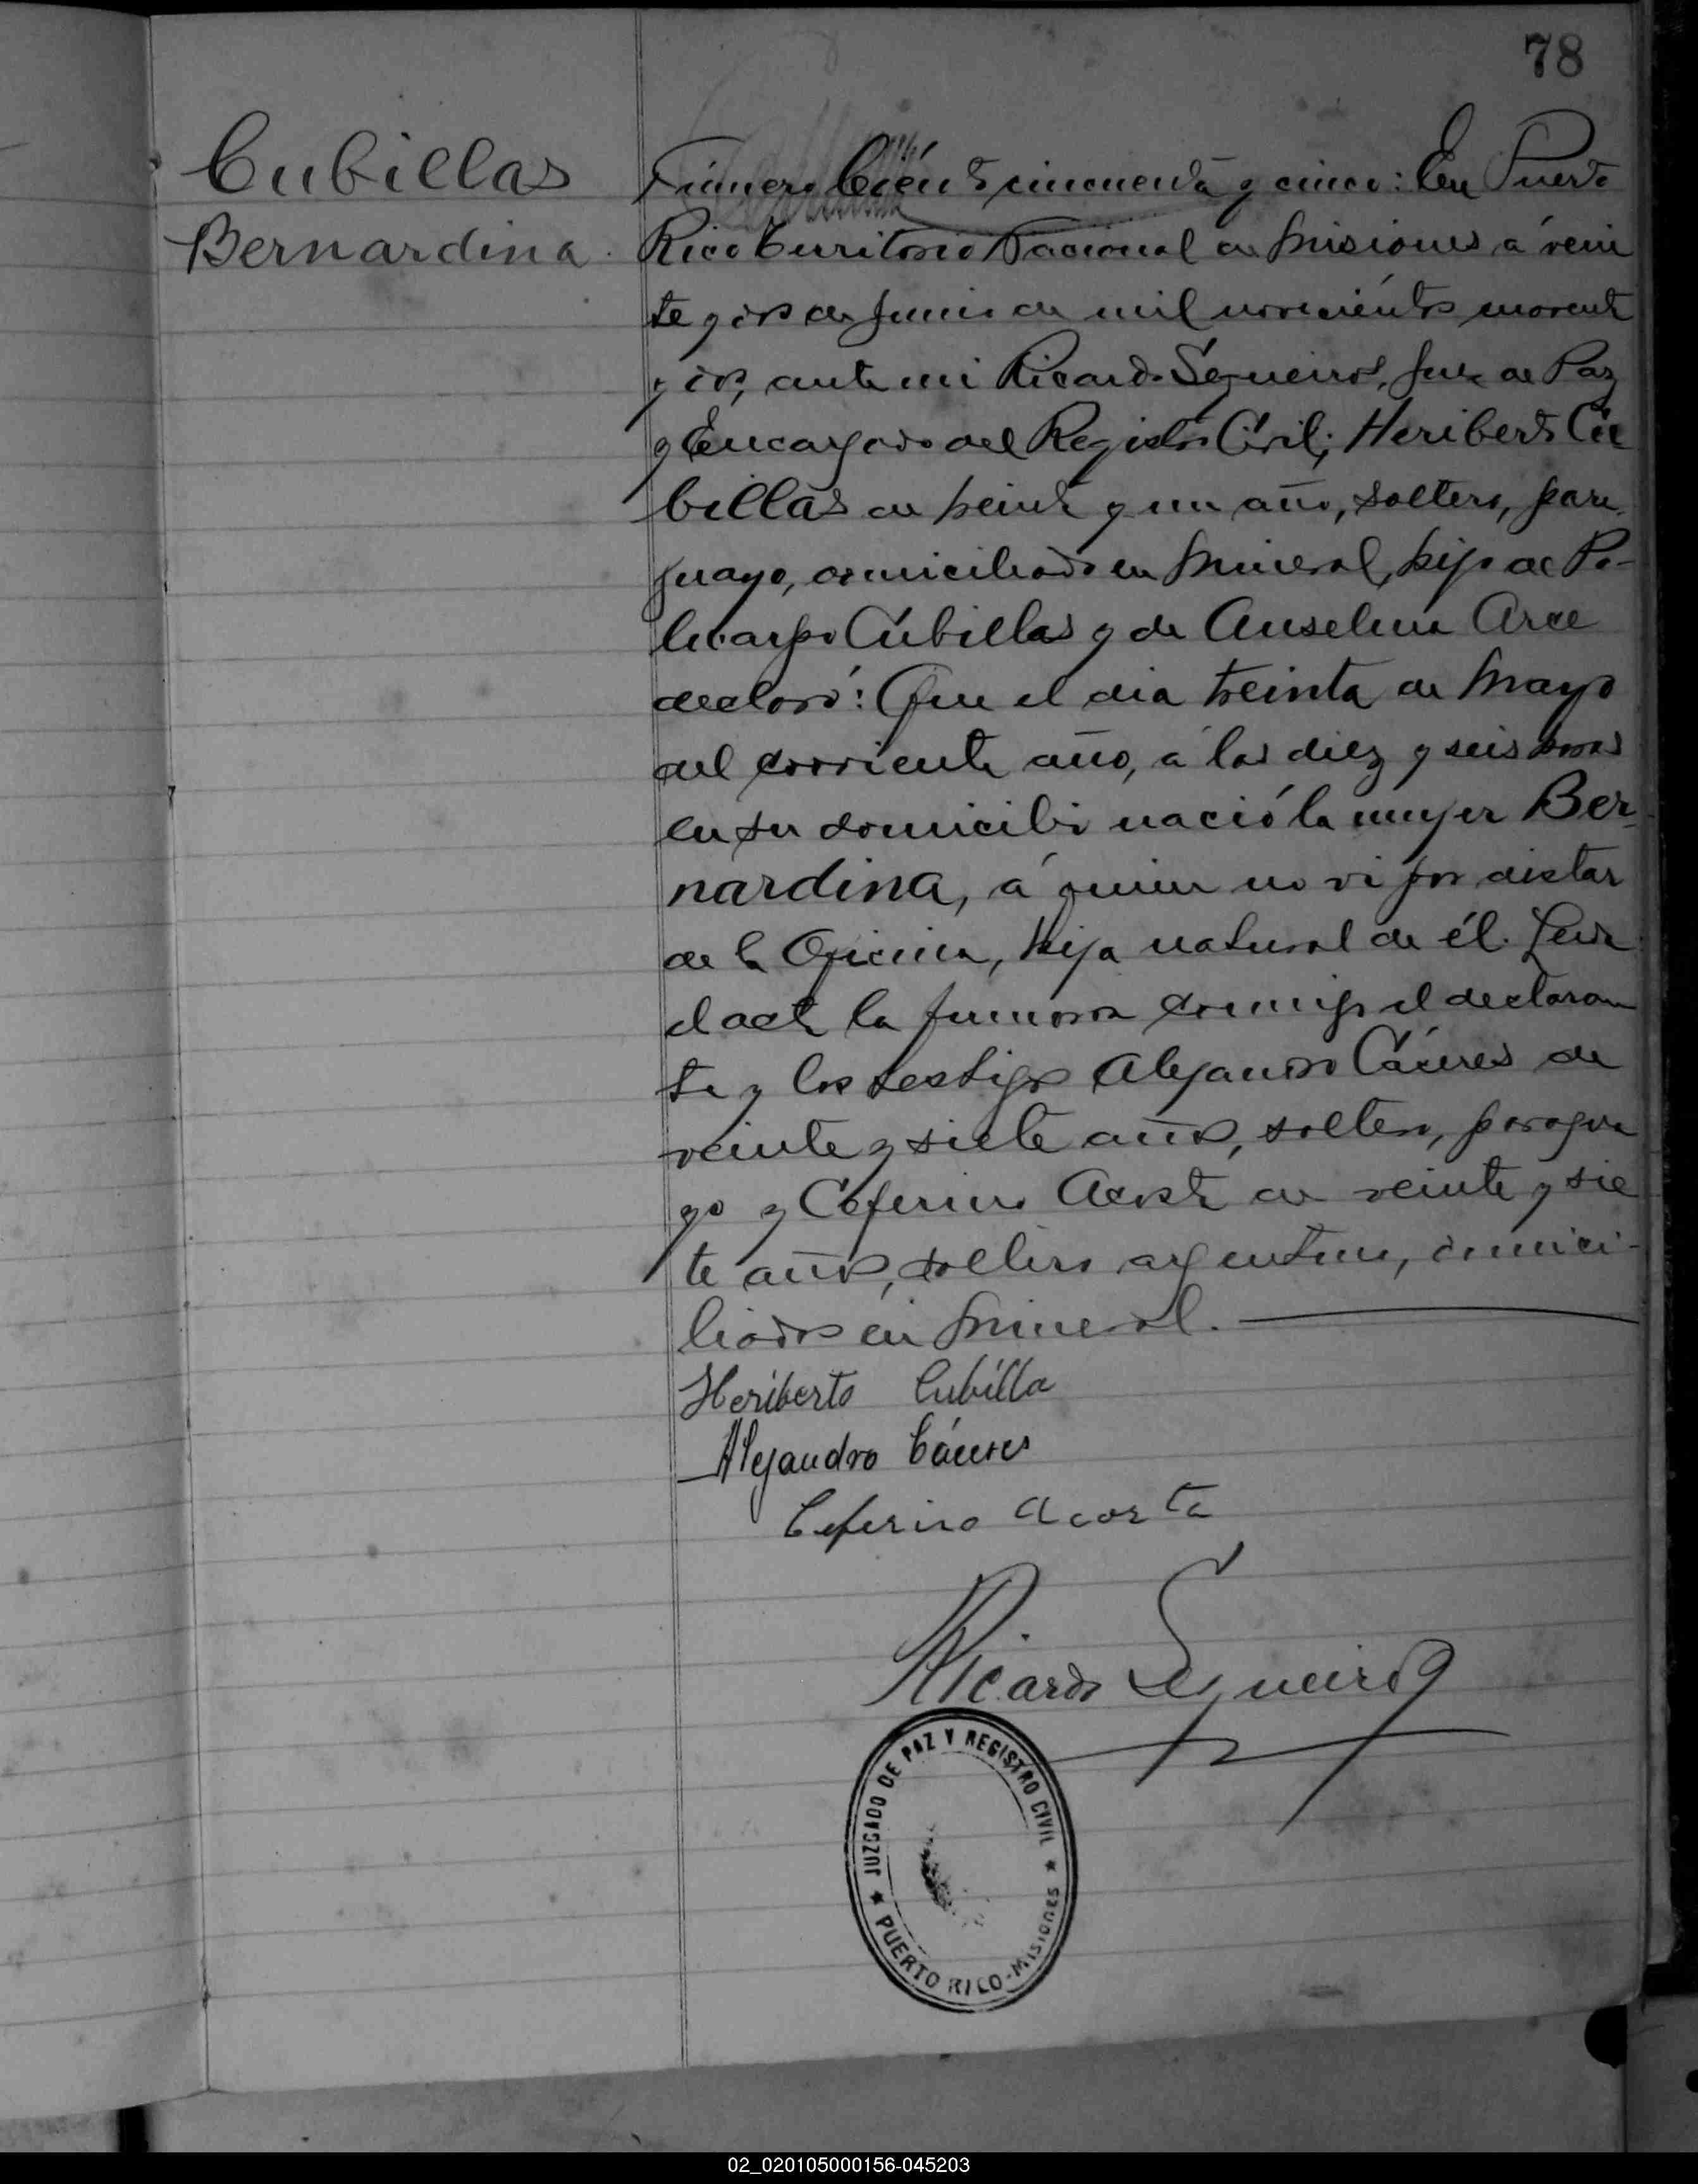 78
Cubillas
Bernardina.
Número Ciento cincuenta y cinco: En Puerto
Rico Territorio Nacional de Misiones á vein
te y dos de Junio de mil novecientos
y dos, ante mi Ricardo Segueiros, Juez de Paz
y Encargado del Registro Civil; Heriberto Cu
billas de treinta y un año, soltero, para
guayo, domiciliado en Mineral, hijo de Po-
licarpo Cubillas y de Anselma Arce
declaró: Que el dia treinta de Mayo
del corriente año, á las diez y seis horas
en su domicilio nació la mujer Ber
nardina, á quien no vi por distar
de la Oficina, hija natural de él. Leida
el acta la firmaron conmigo el declaran
te y los testigos Alejandro Cáceres de
veinte y siete años, soltero, paragua
yo y Ceferino Acosta de veinte y sie
te años, soltero argentino, domici-
liados en Mineral.
Heriberto Cubilla
Alejandro Cáceres
Ceferino Acosta
Ricardo Segueiros
JUZGADO DE PAZ Y REGISTRO CIVIL
★ PUERTO RICO-MISIONES ★
02_020105000156-045203